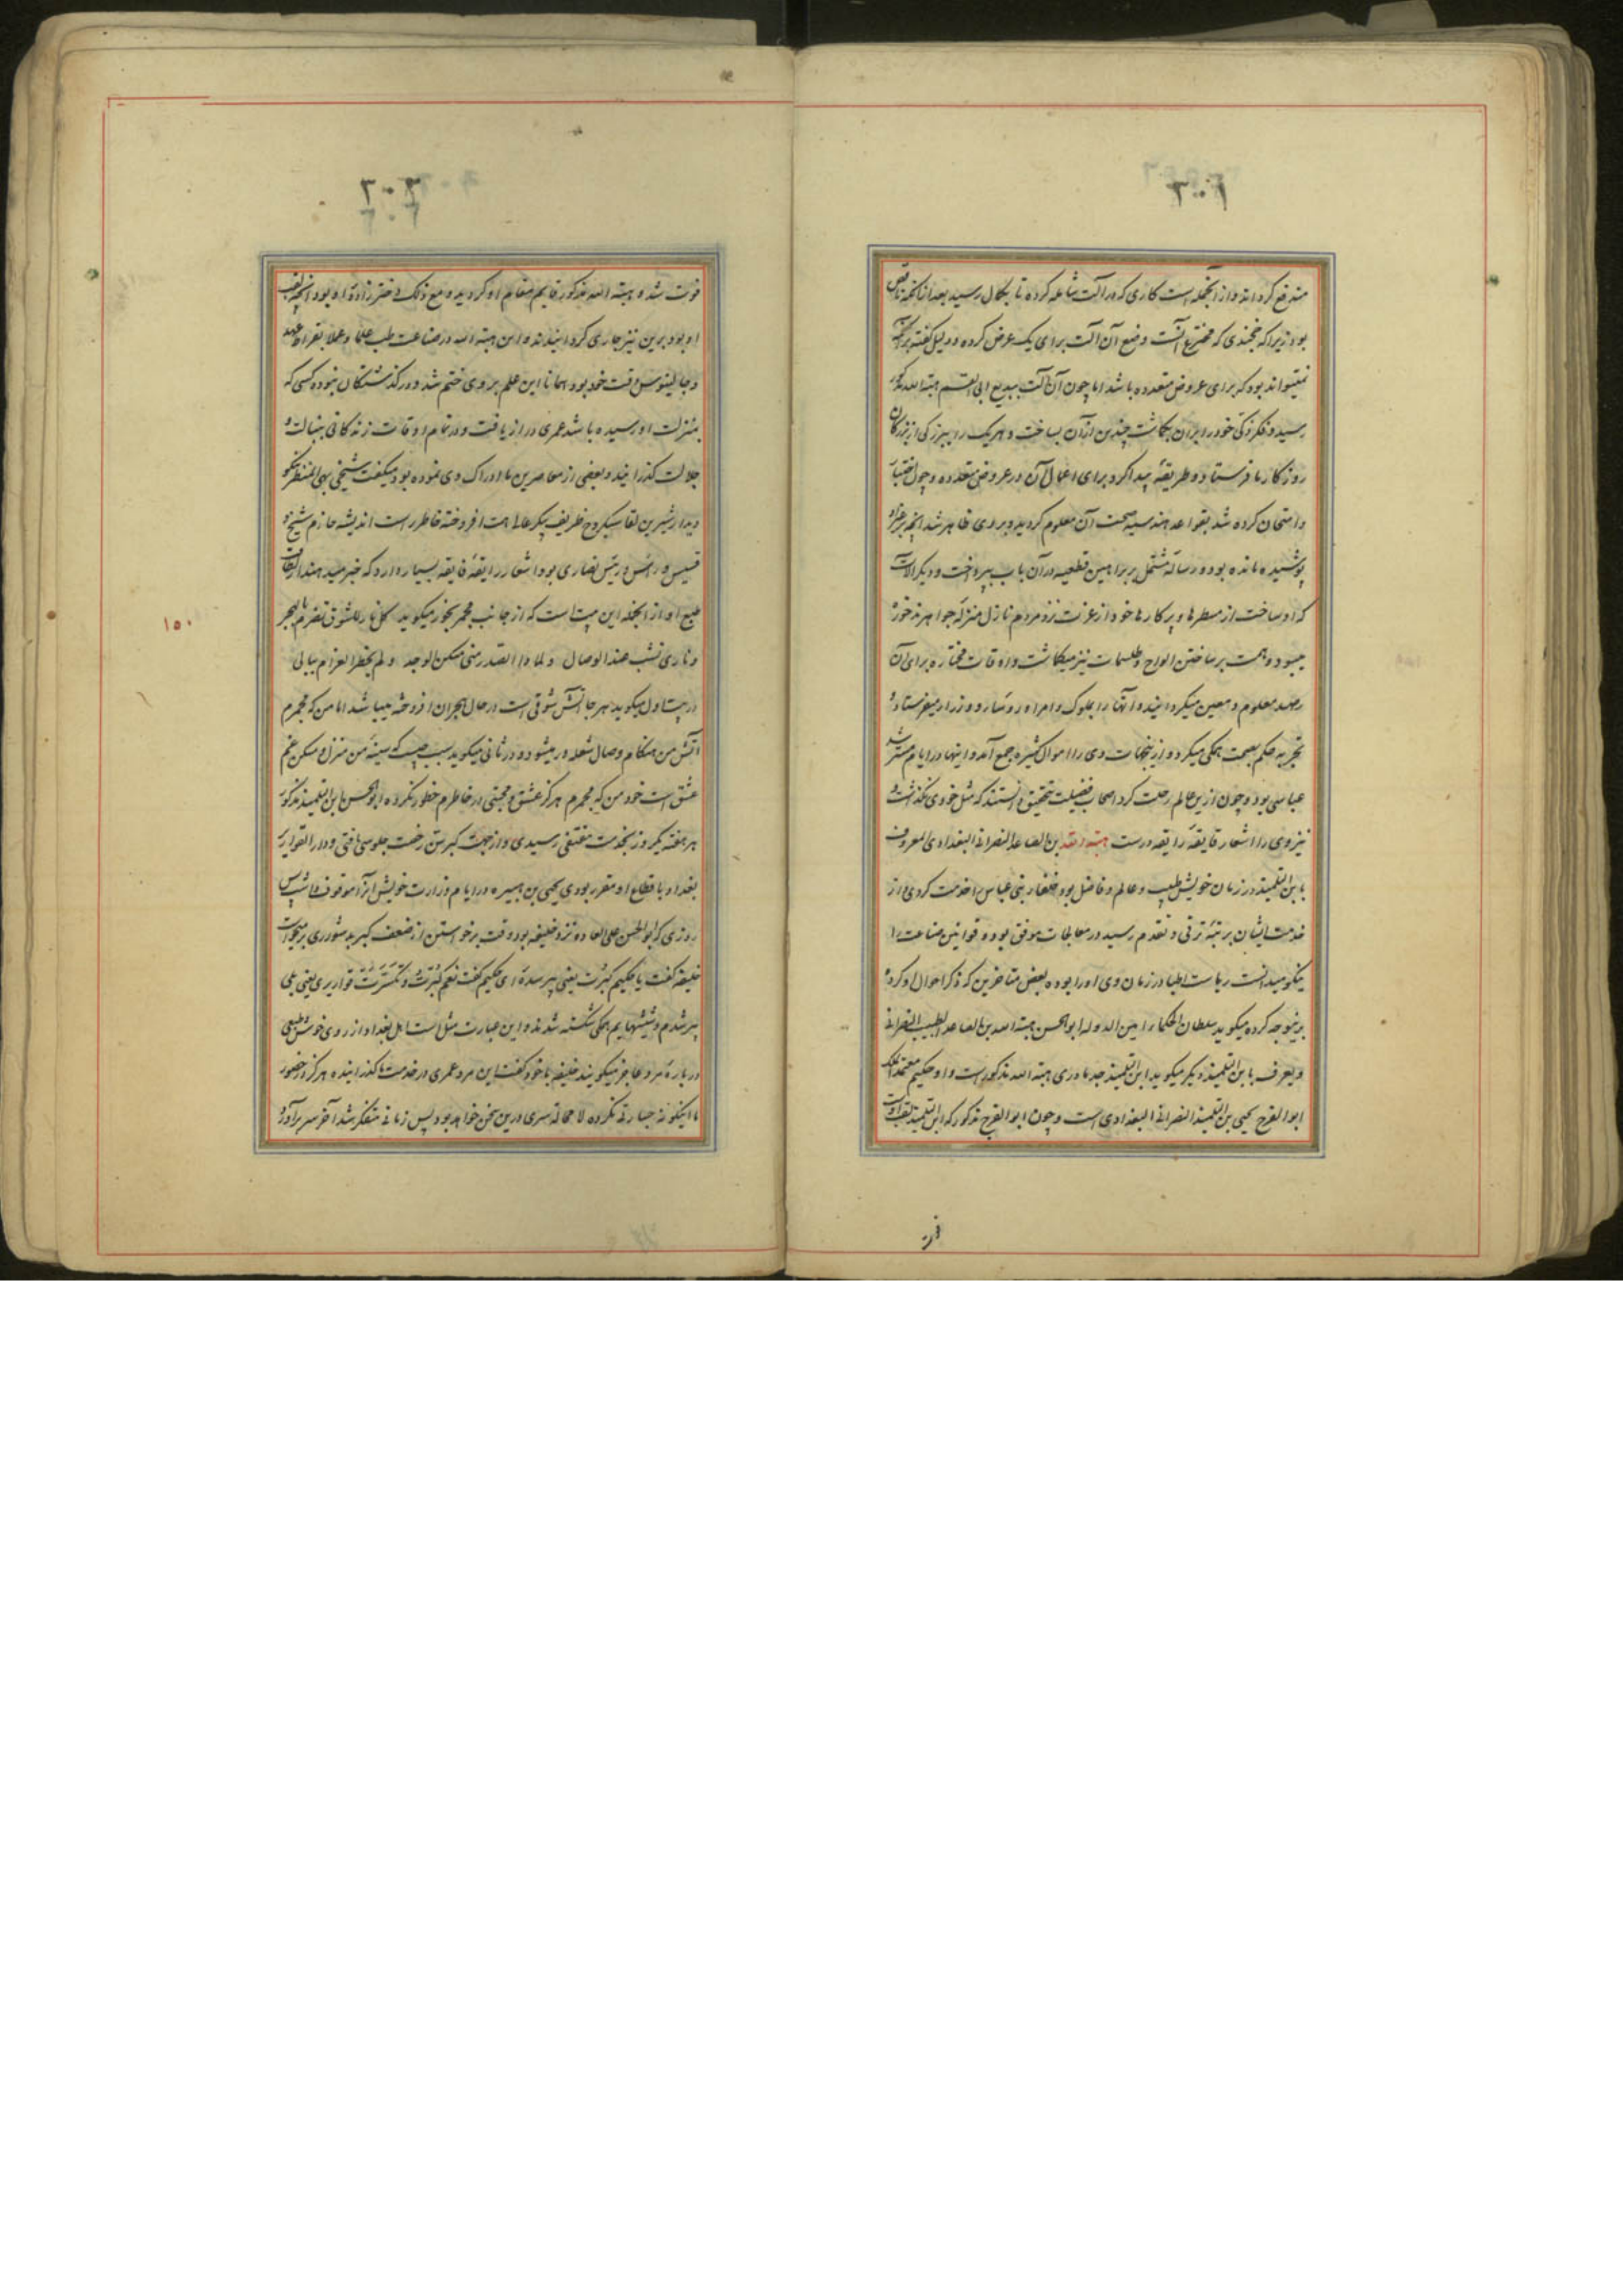 مندفع کردانند و از آنجمله است کاری که در آلت شامله کرده تا بکمال رسید بعد از آنکه ناقص
بود زیرا که خجندی که مخترع آنست وضع آن آلت برای یک عرض کرده و دلیل کفته بر آنکه
نمیتواند بود که برای عروض متعدده باشد اما چون آن آلت ببدیع ابی القسم هبة الله مذکور
رسید و فکر ذکی خود را بر آن بکماشت چندین از آن بساخت و هر یک را ببزرکی از بزرکان
روزکار ما فرستاد و طریقهٔ پیدا کرد برای اعمال آن در عروض متعدده و چون اختبار
و امتحان کرده شد بقواعد هندسیه صحت آن معلوم کردید و بر وی ظاهر شد آنچه بر غیر او
پوشیده مانده بود و رسالهٔ مشتمل بر براهین قطعیه در آن باب بپرداخت و دیکر آلات
که او ساخت از مسطرها و پرکارها خود از عزت نزد مردم نازل منزلهٔ جواهر نذخوره
میبود و همت بر ساختن الواح و طلسمات نیز میکماشت و اوقات مختاره برای آن
رصد معلوم و معین میکردانید و آنها را بملوک و امرا و رؤسا و وزرا میفرستاد و
تجربه حکم بصحت همکی میکرد و از ینجهات وی را اموال کثیره جمع آمد و اینها در ایام مسترشد
عباسی بود و چون ازین عالم رحلت کرد اصحاب فضیلت بتحقیق دانستند که مثل خودی نکذاشت و
نیز وی را اشعار فایقهٔ رایقه درست هبة الله بن الصاعد النصرانی البغدادی المعروف
بابن التلمیذ در زمان خویش طبیب و عالم و فاضل بود خلفاء بنی عباس را خدمت کردی و از
خدمت ایشان برتبهٔ ترقی و تقدم رسید در معالجات موفق بود و قوانین صناعت را
نیکو میدانست ریاست اطبا در زمان وی او را بوده بعض متاخرین که ذکر احوال او کرده
برینوجه کرده میکوید سلطان الحکما امین الدوله ابو الحسن هبة الله بن الصاعد الطبیب النصرانی
و یعرف بابن التلمیذ و یکر میکوید ابن التلمیذ جد مادری هبة الله مذکور است و او حکیم معتمد الملک
ابو الفرج یحیی بن التلمیذ النصرانی البغدادی است و چون ابو الفرج مذکور که ابن التلمیذ لقب اوست
فوت
فوت شد و هبة الله مذکور قایم مقام او کردید و مع ذلک دخترزادهٔ او بود آنچه لقب
او بود برین نیز جاری کردانیدند و این هبة الله در صناعت طب علما و عملا بقراط عهد
و جالینوس وقت خود بود همانا این علم بر وی ختم شد و در کذشتکان نبوده کسی که
بمنزلت او رسیده باشد عمری دراز یافت و در تمام اوقات زندکانی بنبالت و
جلالت کذرانید و بعضی از معاصرین ما ادراک وی نموده بود میکفت شیخی بهی المنظر نیکو
دیدار شیرین لقا سبکروح ظریف پیکر عالی همت افروخته خاطر راست اندیشه حازم شیخ و
قسیس و راس و رئیس نصاری بود اشعار رایقهٔ فایقه بسیار دارد که خبر میدهند از لطافت
طبع او از آنجمله این بیت است که از جانب مجمر بخور میکوید کل نار للشوق تضرم بالهجر
و ناری تشب عند الوصال و لما ذا الصدر منی سکن الوجد و لم یخطر الغرام ببالی
در بیت اول میکوید هر جا آتش شوقی است در حال هجران افروخته میباشد اما من که مجمرم
آتش من هنکام وصال شعله ور میشود و در ثانی میکوید سبب چیست که سینهٔ من منزل و مسکن غم
عشق است خود من که مجمرم هرکز عشق و محبتی در خاطرم خطور نکرده ابو الحسن ابن التلمیذ مذکور
هر هفته یکروز بخدمت مقتفی رسیدی و از جهت کبر سن رخصت جلوس یافتی و دار القواریر
بغداد باقطاع او مقرر بودی یحیی بن هبیره در ایام وزارت خویش آنرا موقوف داشت پس
روزی که ابو الحسن علی العاده نزد خلیفه بود وقت برخواستن از ضعف کبر بدشواری بر میخواست
خلیفه کفت یا حکیم کبرت یعنی پیر شدهٔ ای حکیم کفت نعم کبرت و تکسرت قواریری یعنی بلی
پیر شدم و شیشهایم همکی شکسته شدند و این عبارت مثل است اهل بغداد از روی خوش طبعی
در بارهٔ مرد عاجز میکویند خلیفه با خود کفت این مرد عمری در خدمت ما کذرانیده هرکز در حضور
ما اینکونه جسارتی نکرده لا محاله سری درین سخن خواهد بود پس زمانی متفکر شد آخر سر برآورد
۱۵۰